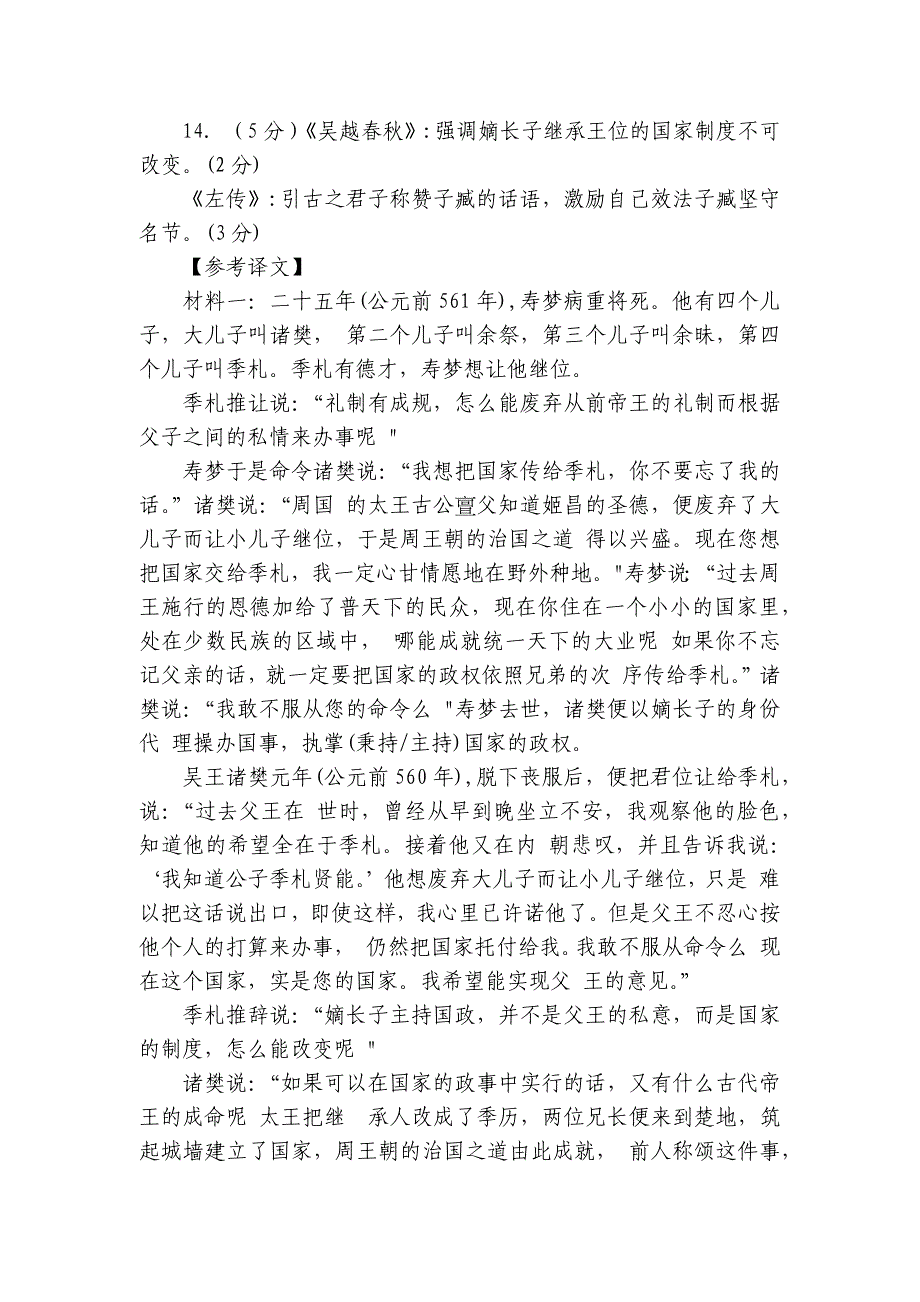 14. (5分)《吴越春秋》:强调嫡长子继承王位的国家制度不可
改变。(2分)
《左传》:引古之君子称赞子臧的话语，激励自己效法子臧坚守
名节。(3分)
【参考译文】
材料一：二十五年(公元前561年),寿梦病重将死。他有四个儿
子，大儿子叫诸樊， 第二个儿子叫余祭，第三个儿子叫余昧，第四
个儿子叫季札。季札有德才，寿梦想让他继位。
季札推让说：“礼制有成规，怎么能废弃从前帝王的礼制而根据
父子之间的私情来办事呢 "
寿梦于是命令诸樊说：“我想把国家传给季札，你不要忘了我的
话。”诸樊说：“周国 的太王古公亶父知道姬昌的圣德，便废弃了大
儿子而让小儿子继位，于是周王朝的治国之道 得以兴盛。现在您想
把国家交给季札，我一定心甘情愿地在野外种地。"寿梦说：“过去周
王施行的恩德加给了普天下的民众，现在你住在一个小小的国家里，
处在少数民族的区域中， 哪能成就统一天下的大业呢 如果你不忘
记父亲的话，就一定要把国家的政权依照兄弟的次 序传给季札。”诸
樊说：“我敢不服从您的命令么 "寿梦去世，诸樊便以嫡长子的身份
代 理操办国事，执掌(秉持/主持)国家的政权。
吴王诸樊元年(公元前560年),脱下丧服后，便把君位让给季札，
说：“过去父王在 世时，曾经从早到晚坐立不安，我观察他的脸色，
知道他的希望全在于季札。接着他又在内 朝悲叹，并且告诉我说：
‘我知道公子季札贤能。’他想废弃大儿子而让小儿子继位，只是 难
以把这话说出口，即使这样，我心里已许诺他了。但是父王不忍心按
他个人的打算来办事， 仍然把国家托付给我。我敢不服从命令么 现
在这个国家，实是您的国家。我希望能实现父 王的意见。”
季札推辞说：“嫡长子主持国政，并不是父王的私意，而是国家
的制度，怎么能改变呢 "
诸樊说：“如果可以在国家的政事中实行的话，又有什么古代帝
王的成命呢 太王把继 承人改成了季历，两位兄长便来到楚地，筑
起城墙建立了国家，周王朝的治国之道由此成就， 前人称颂这件事，